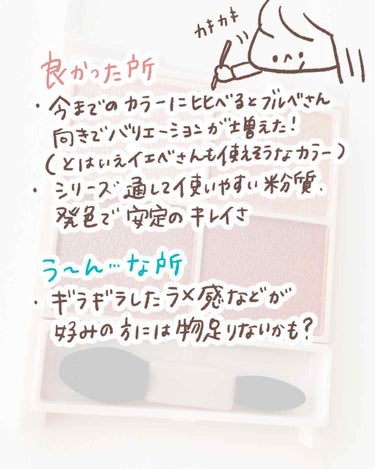 カキカキ
良かった所
・今までのカラーに比べるとブルベさん
向きでバリエーションが増えた!
(とはいえイエベさんも使えそうなカラー)
・シリーズ通して使いやすい粉質、
発色で安定のキレイさ
う〜ん…な所
・ギラギラしたラメ感などが
好みの方には物足りないかも?